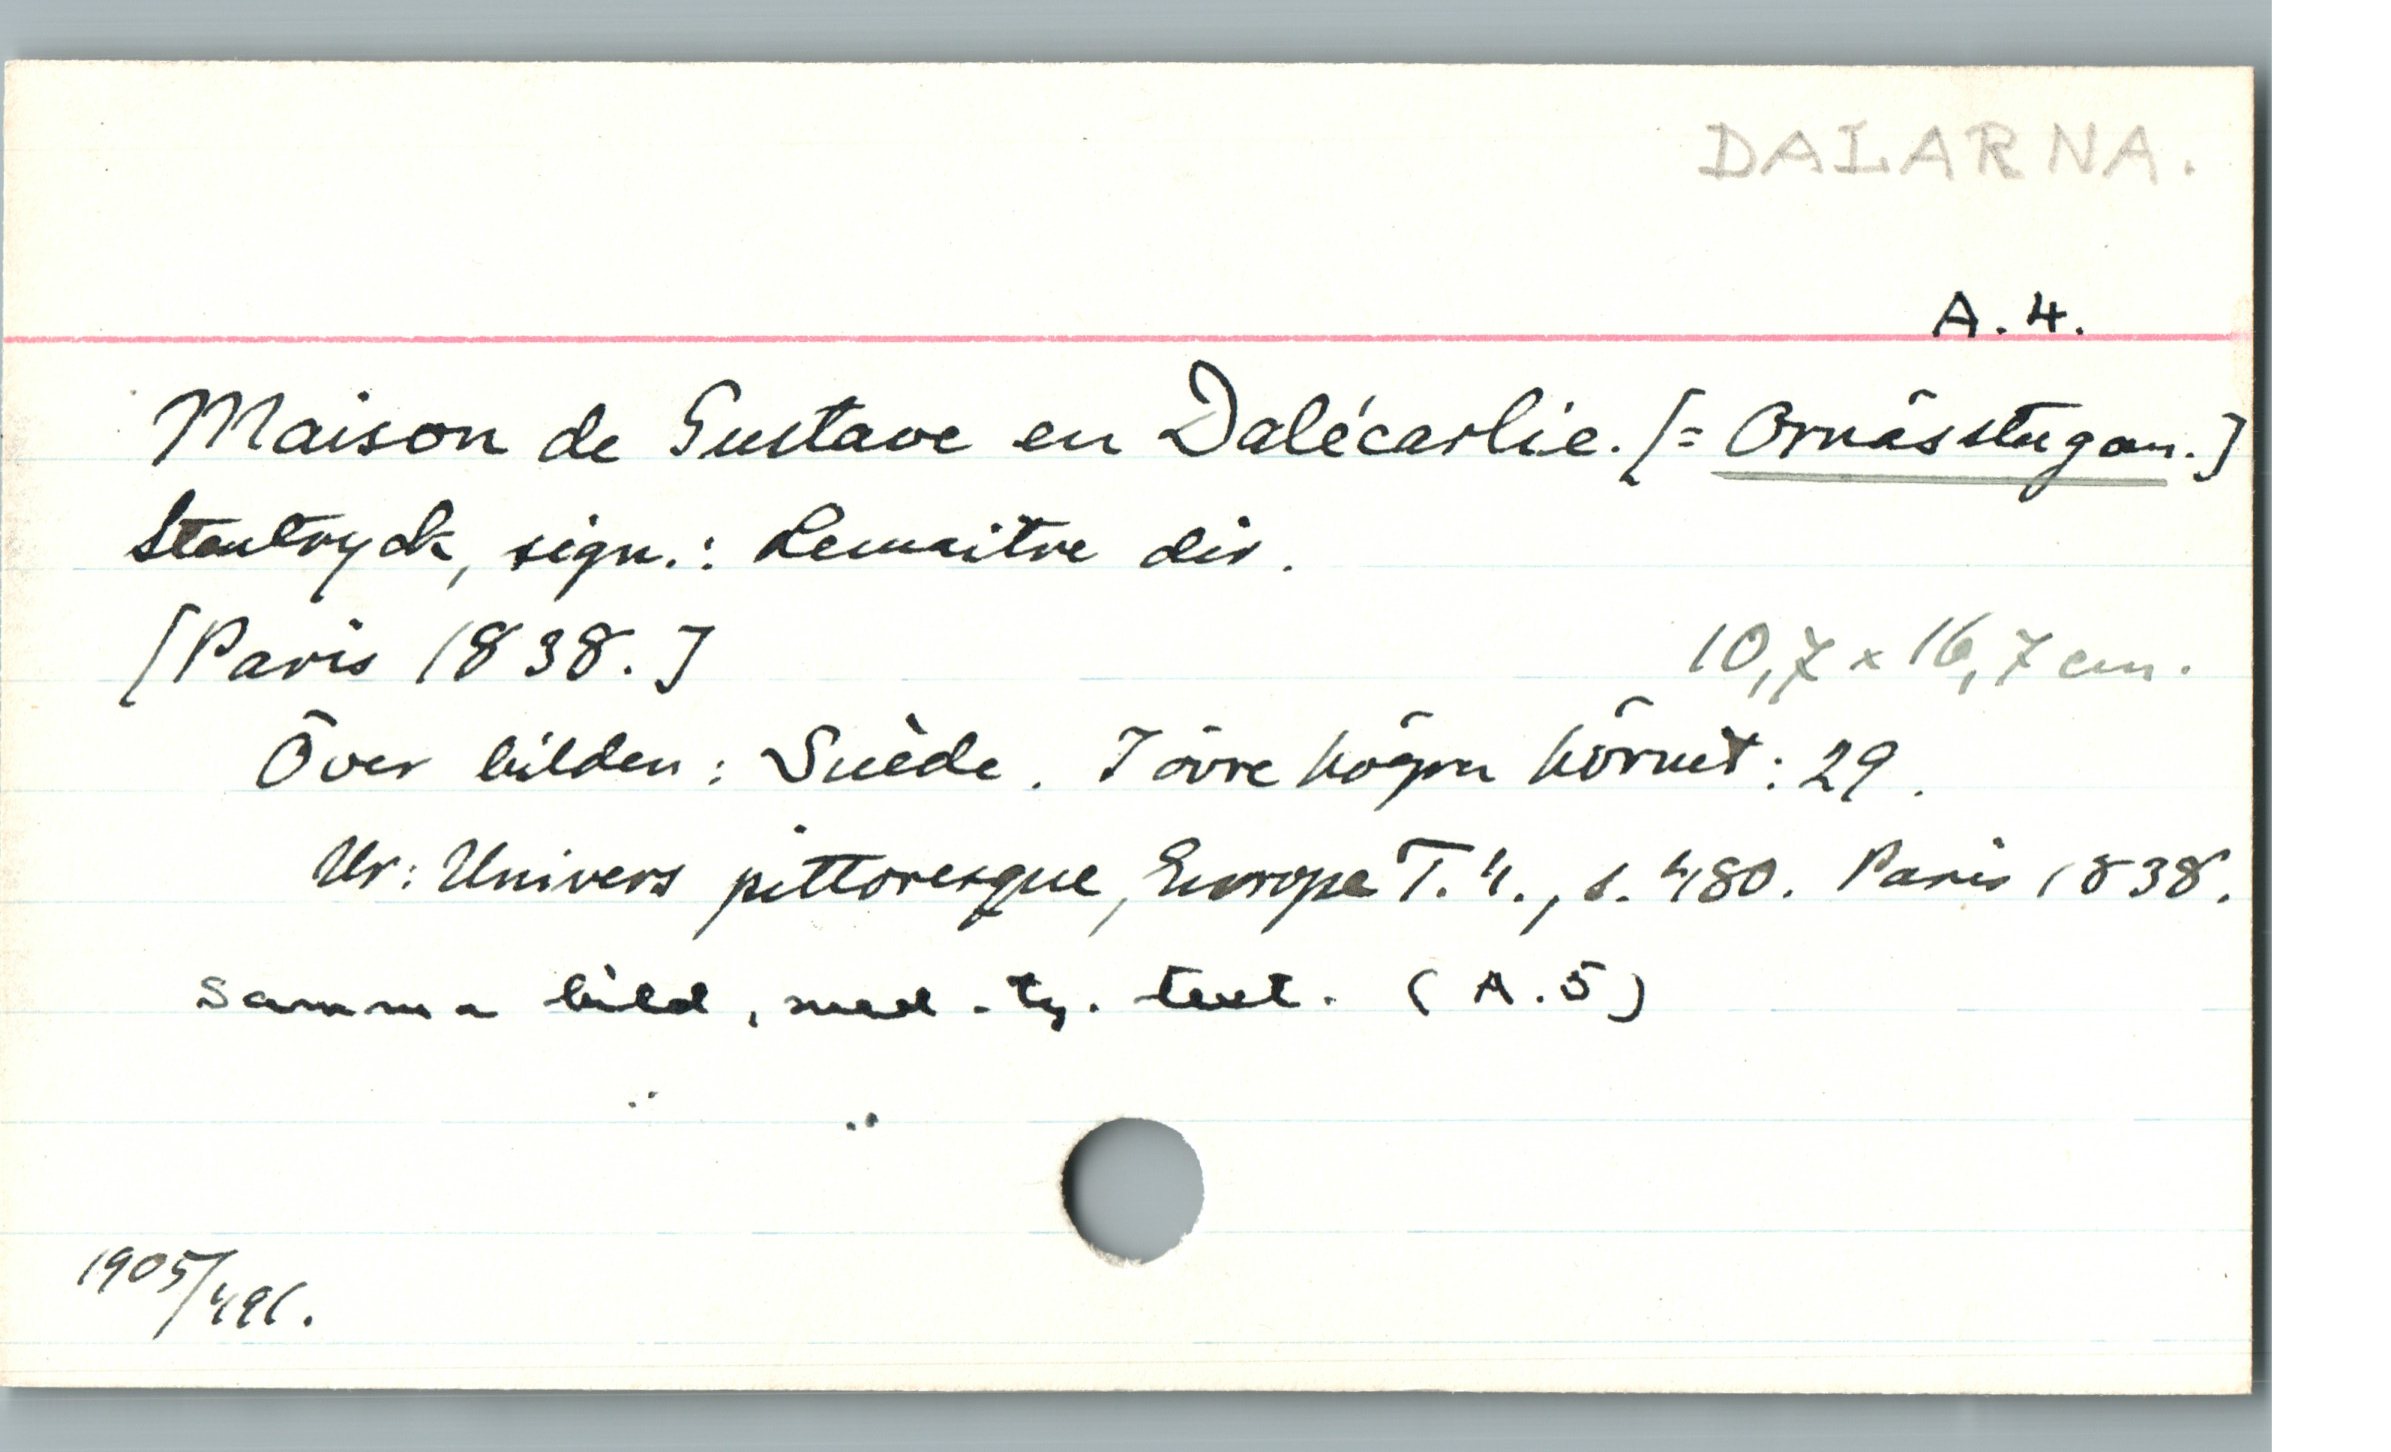 DALARNA.
A. 4.
Maison de Gustave en Dalécarlie. [= Ornässtugan.]
Stentryck, sign.: Lemaitre dir.
[Paris 1838.] 10,7 x 16,7 cm.
Över bilden: Suède. I övre högra hörnet: 29.
Ur: Univers pittoresque, Europe T. 4., s. 480. Paris 1838.
Samma bild, med ty. text. (A.5)
1905/491.